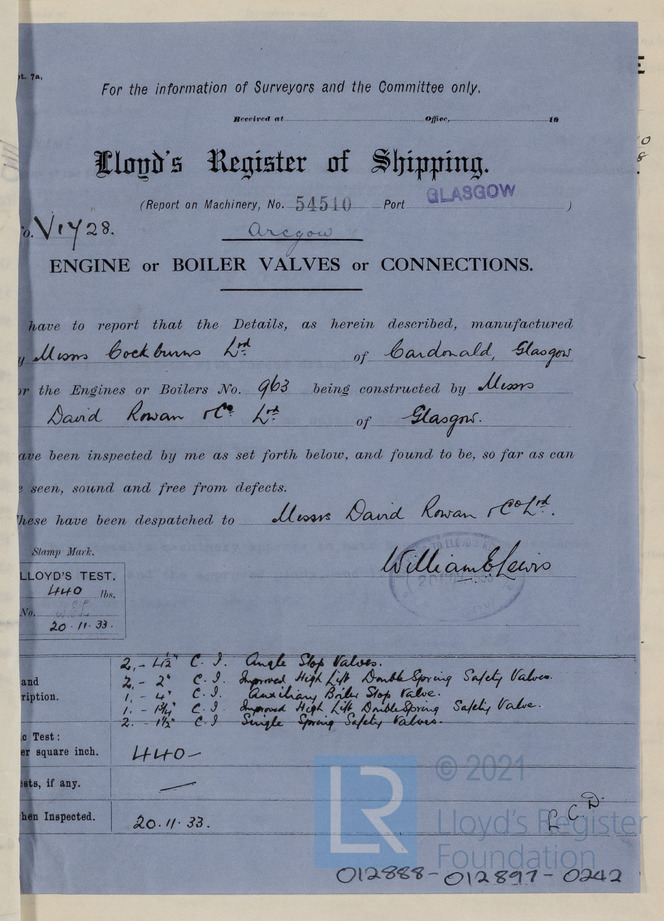 pt. 7a,
For the information of Surveyors and the Committee only.
Received at Office, 19
Lloyd's Register of Shipping.
(Report on Machinery, No. 54510 Port GLASGOW )
o. V1728.
Arcgow
ENGINE or BOILER VALVES or CONNECTIONS.
have to report that the Details, as herein described, manufactured
y Messrs Cockburns Ltd of Cardonald, Glasgow
or the Engines or Boilers No. 963 being constructed by Messrs
David Rowan & Co Ltd of Glasgow.
ave been inspected by me as set forth below, and found to be, so far as can
e seen, sound and free from defects.
hese have been despatched to Messrs David Rowan & Co Ltd.
Stamp Mark.
William E Lewis
LLOYD'S TEST.
440 lbs.
No.
20.11.33.
2. - 4½" C.I. Angle Stop Valves.
and 2. - 2" C.I. Improved High Lift Double Spring Safety Valves.
ription. 1. - 4" C.I. Auxiliary Boiler Stop Valve.
1. - 1¾" C.I. Improved High Lift Double Spring Safety Valve.
2. - 1½" C.I. Single Spring Safety Valves.
c Test:
er square inch. 440-
sts, if any. —
hen Inspected. 20.11.33.
L.C.D.
LR
© 2021
Lloyd's Register
Foundation
012888-012897-0242